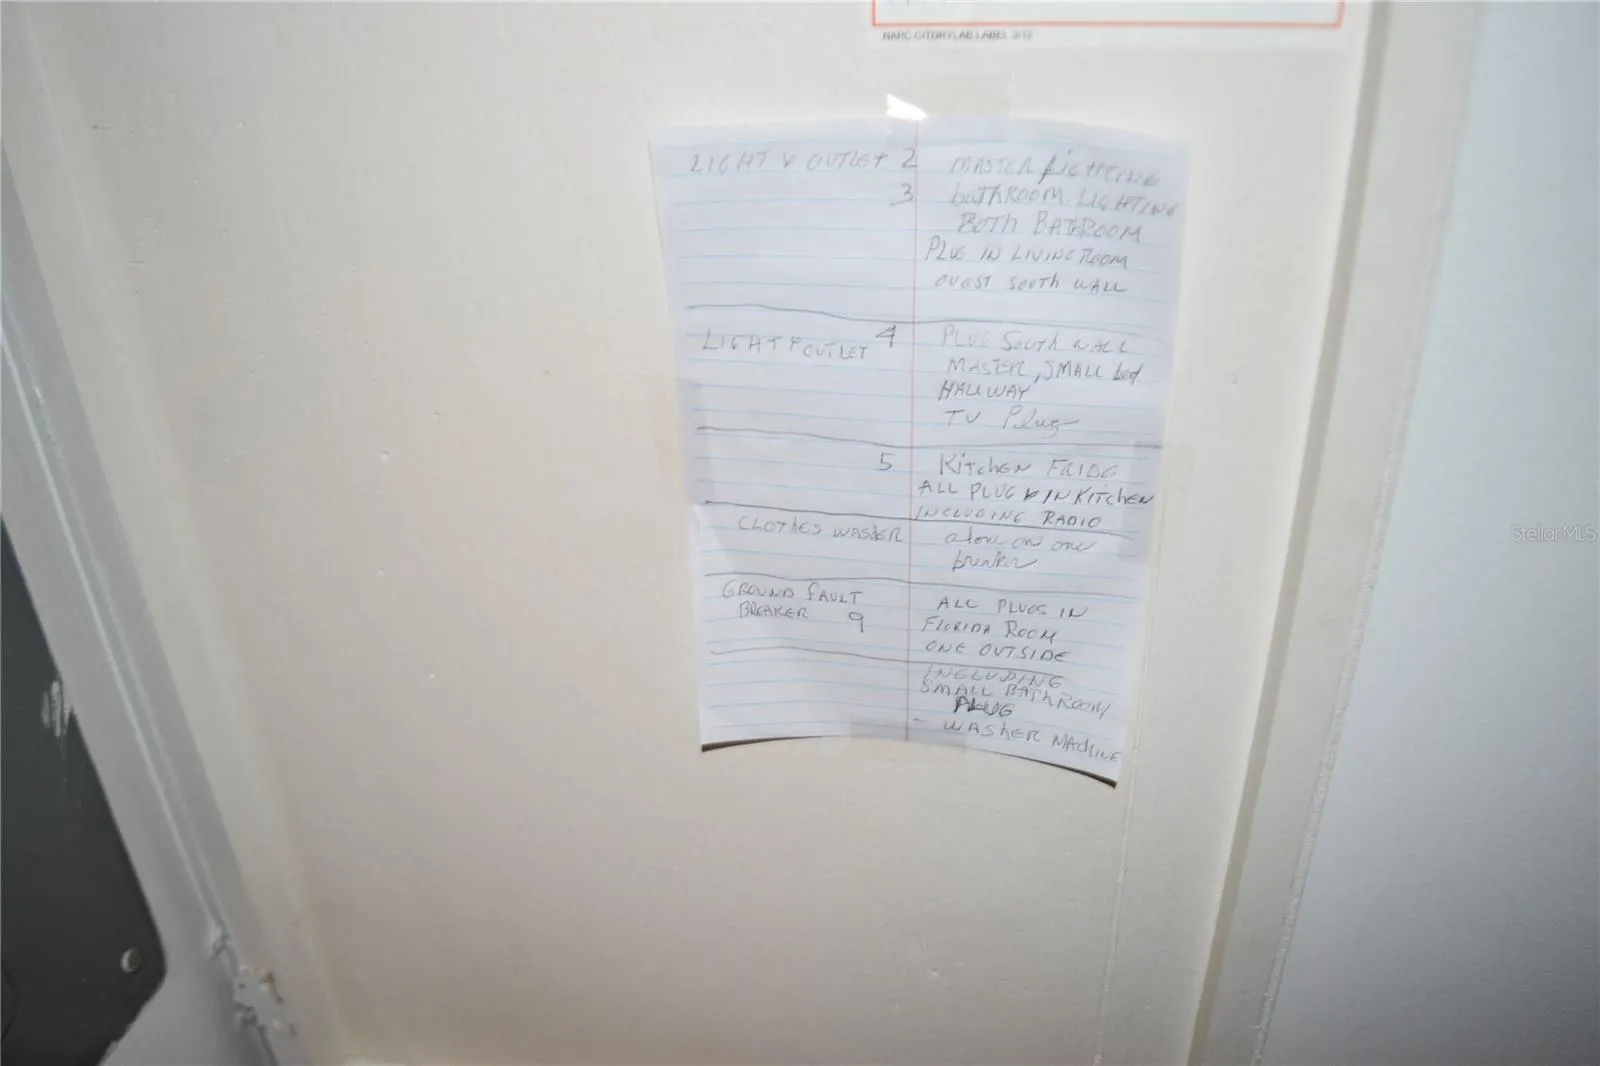 NARC CITDRYLAB LABEL 3/12
LIGHT & OUTLET 2 MASTER LIGHTING
3 bATHROOM LIGHTING
BOTh BATEROOM
PLUG IN LIVING ROOM
OUEST SOUTH WALL
LIGHT & OUTLET 4 PLUG SOUTH WALL
MASTER, SMALL bed
HALLWAY
TV Plug
5 KITCHEN FRIDG
ALL PLUG & IN KITCHEN
INCLUDING RADIO
CLOTHES WASHER alone on one
breaker
GROUND FAULT
BREAKER 9
ALL PLUGS IN
FLORIDA ROOM
ONE OUTSIDE
INCLUDING
SMALL BATHROOM
PLUG
- WASHER MACHINE
StellarMLS